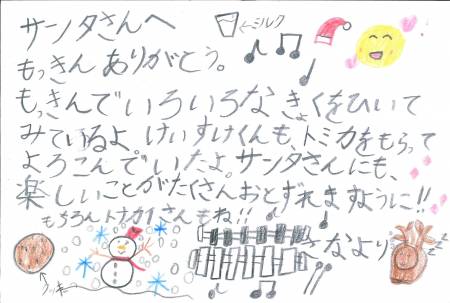 サンタさんへ
←ミルク
もっきんありがとう。
もっきんでいろいろなきょくをひいて
みているよ。けいすけくんも、トミカをもらって
よろこんでいたよ。サンタさんにも、
楽しいことがたくさんおとずれますように!!
もちろんトナカイさんもね!!
さなより
クッキー